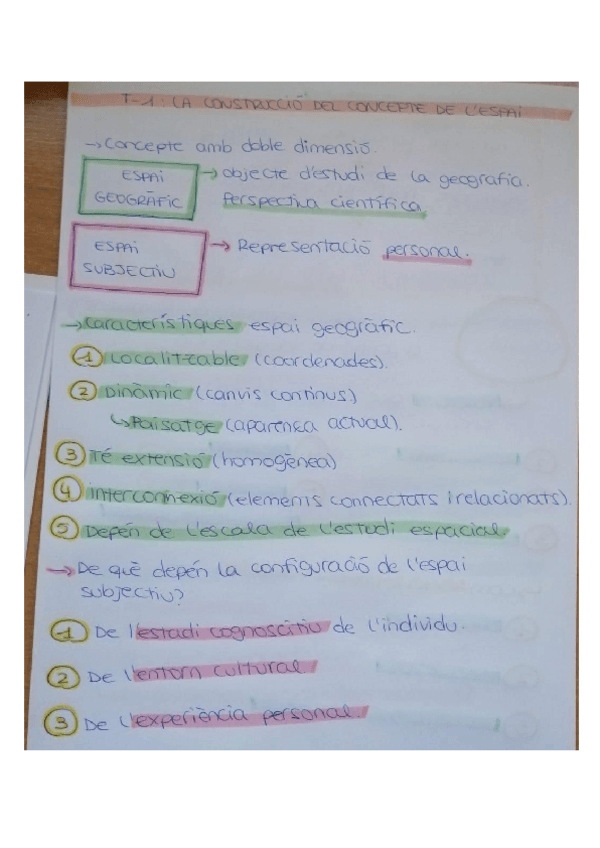 T-1: LA CONSTRUCCIÓ DEL CONCEPTE DE L'ESPAI
→ Concepte amb doble dimensió.
ESPAI GEOGRÀFIC → objecte d'estudi de la geografia.
Perspectiva científica.
ESPAI SUBJECTIU → Representació personal.
→ Característiques espai geogràfic.
1 Localitzable (coordenades).
2 Dinàmic (canvis continus)
↳ Paisatge (aparença actual).
3 Té extensió (homogènea)
4 interconnexió (elements connectats i relacionats).
5 Depèn de l'escala de l'estudi espacial.
→ De què depèn la configuració de l'espai
subjectiu?
1 De l'estadi cognoscitiu de l'individu.
2 De l'entorn cultural.
3 De l'experiència personal.